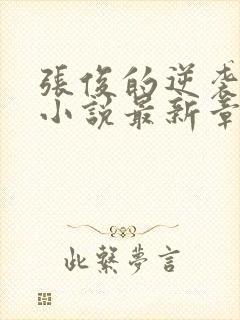 張俊的逆袭
小說最新章
此繫夢言